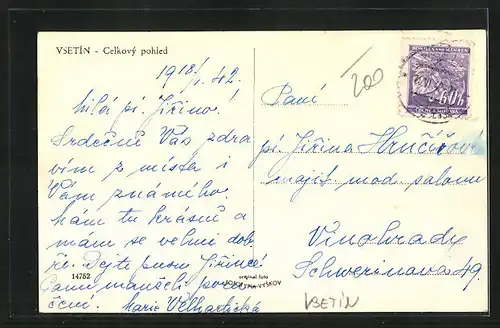 VSETÍN - Celkový pohled
19 18/V. 42.
Milá pí. Jiřino!
Srdečně Vás zdra
vím z místa i
Vám známého.
Mám tu krásně a
mám se velmi dob
ře. Dejte pusu Jiřince!
Panu manželi poru
čení. Marie
14752
original foto
VYŠKOV
200
60h
Paní
pí. Jiřina Hrnčířová
majit. mod. salonu
Vinohrady
Schwerinova 49.
VSETÍN